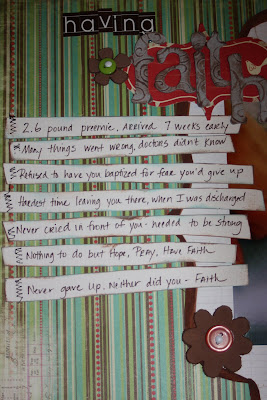 having
2.6 pound preemie, arrived 7 weeks early
Many things went wrong, doctors didn't know
Refused to have you baptized for fear you'd give up
Hardest time leaving you there, when I was discharged
Never cried in front of you - needed to be strong
Nothing to do but Hope, Pray, Have Faith
Never gave up. Neither did you - Faith